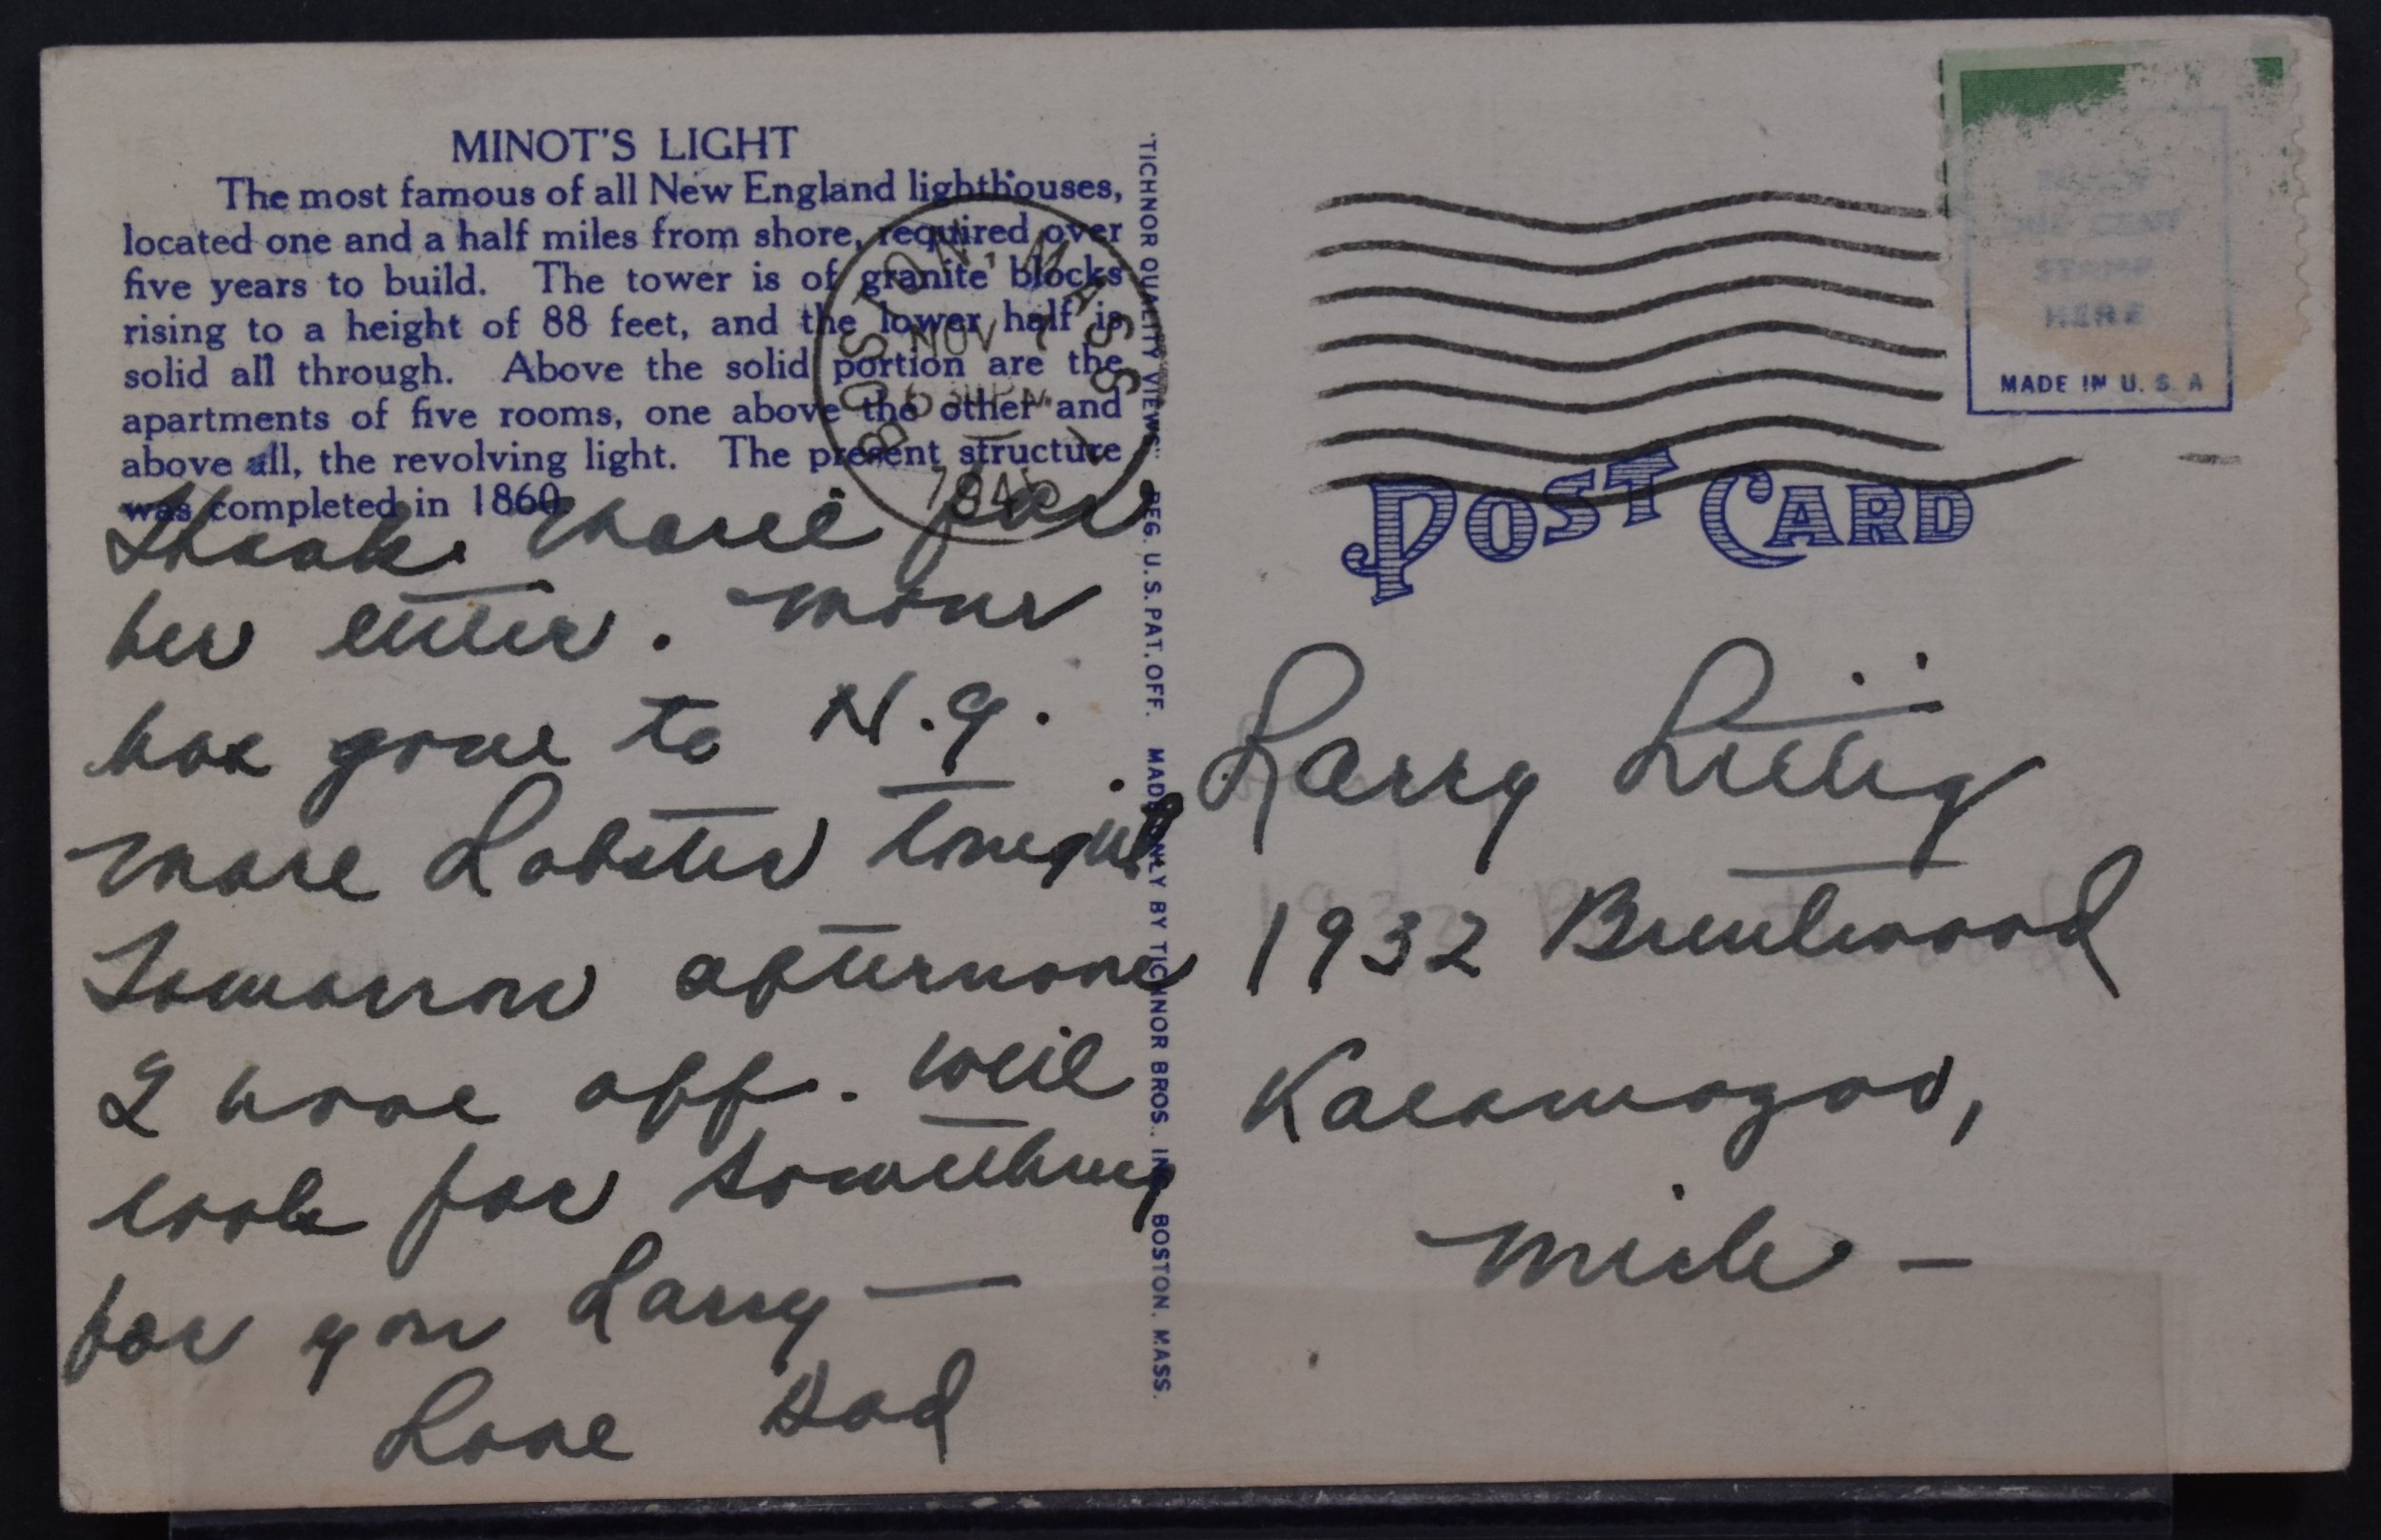 MINOT'S LIGHT
The most famous of all New England lighthouses,
located one and a half miles from shore, required over
five years to build. The tower is of granite blocks
rising to a height of 88 feet, and the lower half is
solid all through. Above the solid portion are the
apartments of five rooms, one above the other and
above all, the revolving light. The present structure
was completed in 1860.
Thank for
her letter.
has gone to N.Y.
more Lobster tonight
Tomorrow afternoon
I have off. Will
look for something
for you Larry —
Love Dad
TICHNOR QUALITY VIEWS REG. U.S. PAT. OFF. MADE ONLY BY TICHNOR BROS., INC. BOSTON, MASS.
BOSTON, MASS
NOV
PM
ONE CENT
STAMP
HERE
MADE IN U.S.A
POST CARD
Larry Littig
1932 Brentwood
Kalamazoo,
Mich —